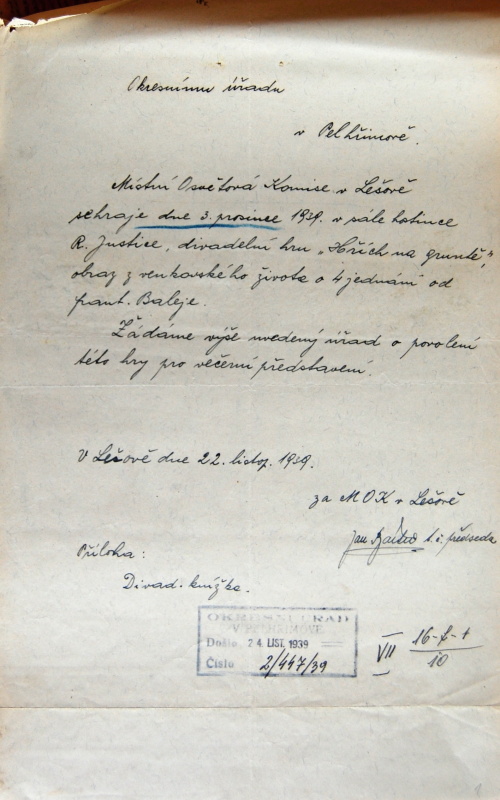 Okresnímu úřadu
v Pelhřimově.
Místní Osvětová Komise v Lešově
sehraje dne 3. prosince 1939. v sále hostince
R. Justice, divadelní hru „Hřích na gruntě",
obraz z venkovského života o 4 jednání od
frant. Baleje.
Žádáme výše uvedený úřad o povolení
této hry pro večerní představení.
V Lešově dne 22. listop. 1939.
za MOK v Lešově
Jan t. č. předseda
Příloha:
Divad. knížka.
OKRESNÍ ÚŘAD
V PELHŘIMOVĚ
Došlo 24. LIST. 1939
Číslo 2/447/39
VII 16-7-1
10